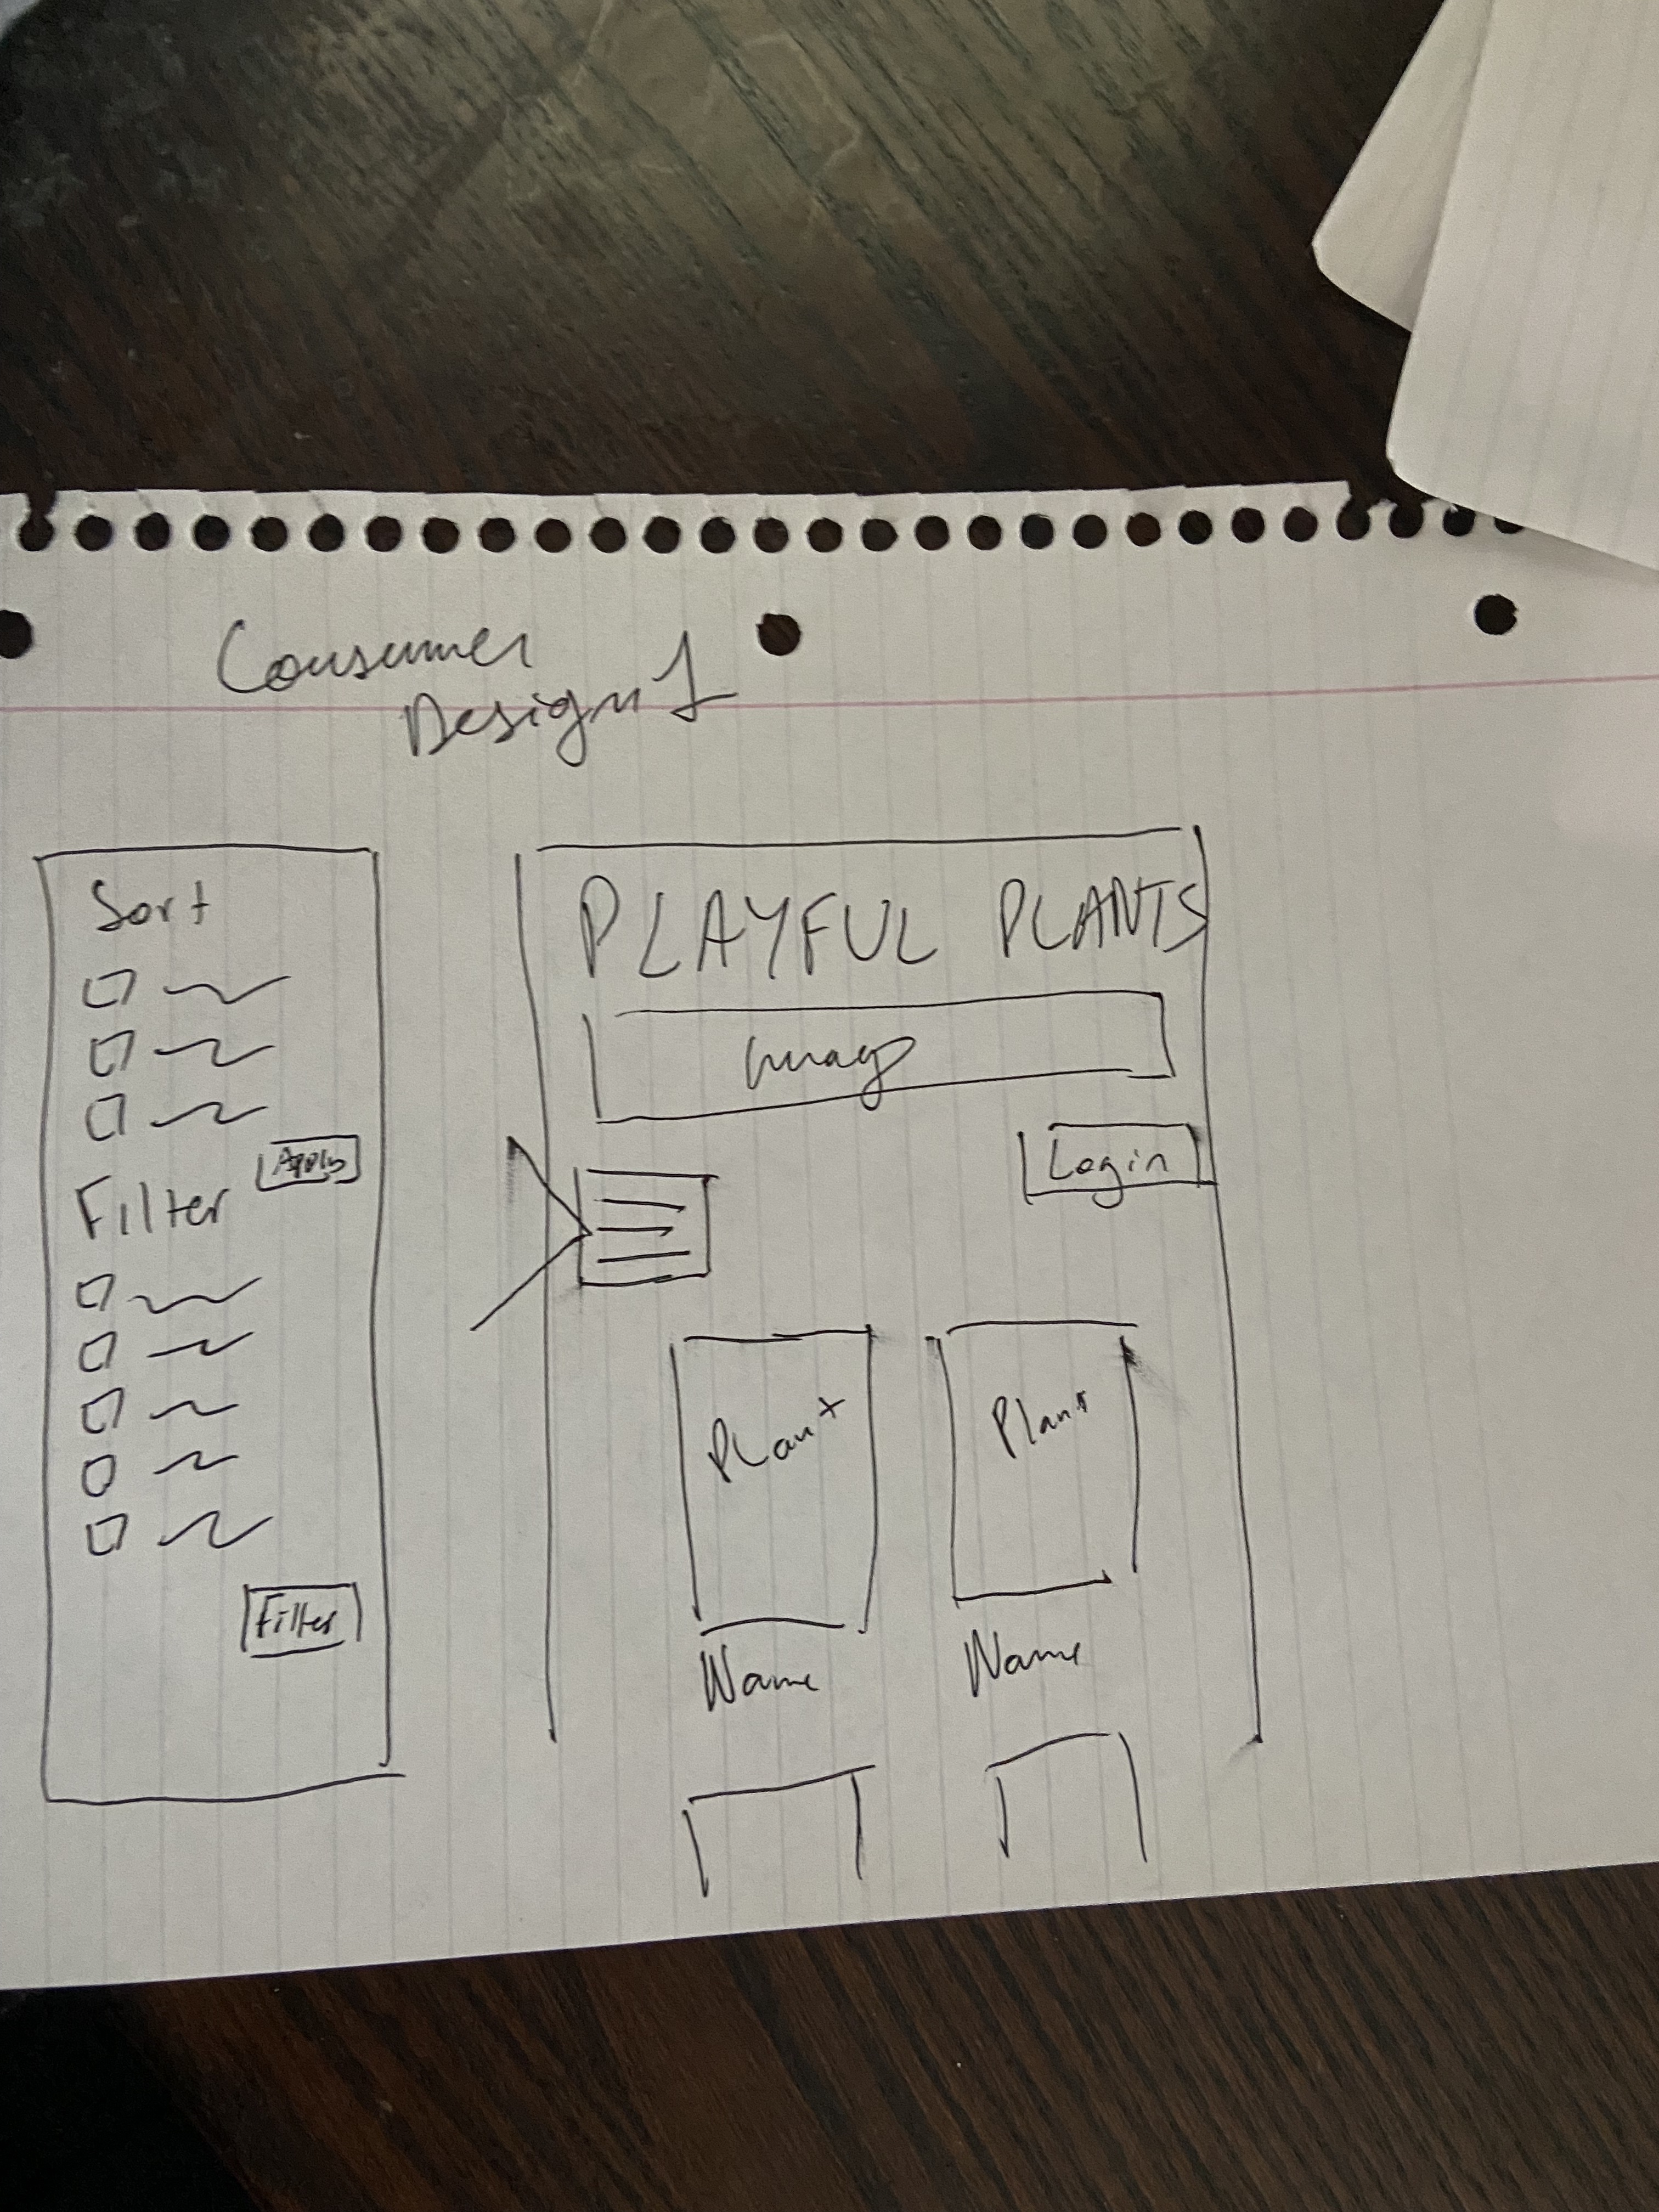 Consumer
Design 1
Sort
Apply
Filter
Filter
PLAYFUL PLANTS
Image
Login
Plant
Plant
Name
Name